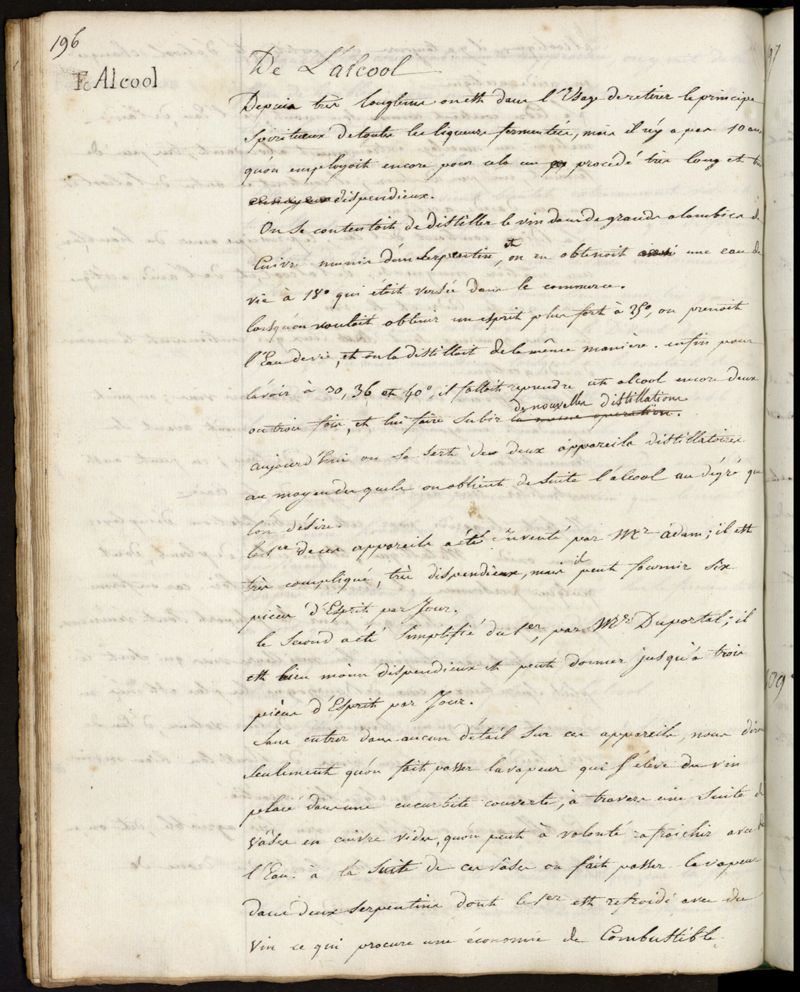 196
Fc Alcool
De L'alcool
Depuis très longtems on est dans l'Usage de retirer le principe
Spiritueux de toutes les liqueurs fermentées, mais il n'y a pas 10 ans
qu'on employoit encore pour cela un procédé très long et très
dispendieux.
On se contentoit de distiller le vin dans de grands alambics de
Cuivre munis d'un Serpentin, et on en obtenoit une eau de
vie à 18° qui étoit versée dans le commerce.
lorsqu'on vouloit obtenir un esprit plus fort à 25°, on prenoit
l'Eau de vie, et on la distilloit de la même manière. enfin pour
l'avoir à 30, 36 et 40°, il falloit reprendre cet alcool encore deux
ou trois fois, et lui faire Subir de nouvelles distillations la même operation.
aujourd'hui on se sert de deux appareils distillatoires
au moyen des quels on obtient de suite l'alcool au dégré que
l'on désire.
le 1er de ces appareils a été inventé par Mr. adam; il est
très compliqué, très dispendieux, mais il peut fournir six
pièces d'Esprit par Jour.
le Second a été Simplifié du 1er, par Mr. Duportal; il
est bien moins dispendieux et peut donner jusqu'à trois
pièces d'Esprit par Jour.
Sans entrer dans aucun détail Sur ces appareils, nous dirons
Seulement qu'on fait passer la vapeur qui s'élève du vin
placé dans une cucurbite couverte, à travers une Suite de
vâses en cuivre vides, qu'on peut à volonté rafraichir avec de
l'Eau. à la Suite de ces vâses on fait passer la vapeur
dans deux serpentins dont le 1er est refroidi avec du
vin ce qui procure une économie de Combustible.